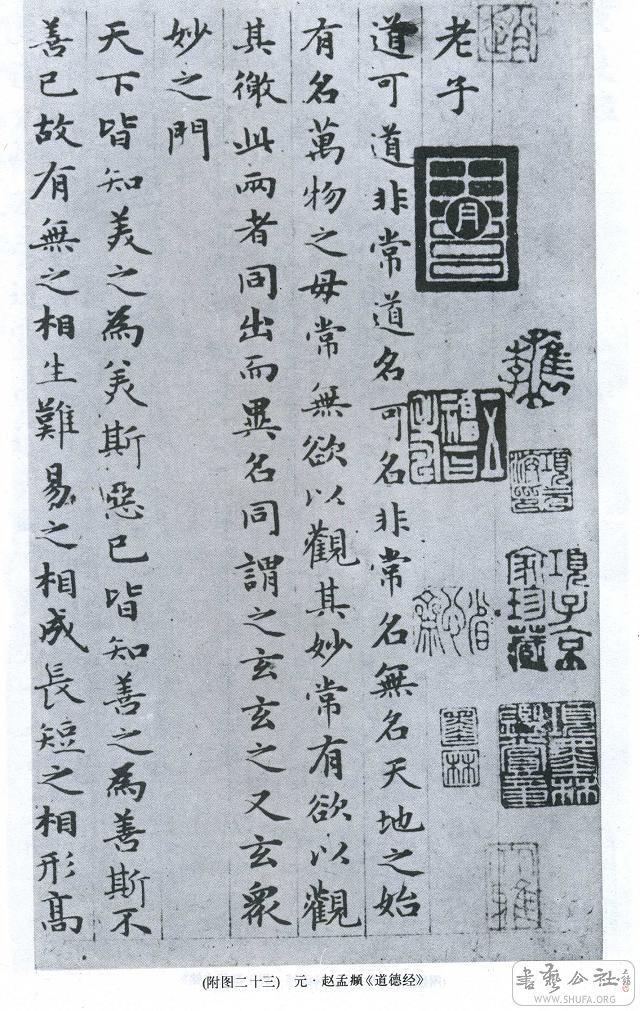 老子
道可道非常道名可名非常名無名天地之始
有名萬物之母常無欲以觀其妙常有欲以觀
其徼此兩者同出而異名同謂之玄玄之又玄衆
妙之門
天下皆知美之為美斯惡已皆知善之為善斯不
善已故有無之相生難易之相成長短之相形高
檇李
項子京
家珍藏
墨林
項墨林
鑑賞章
(附图二十三) 元·赵孟頫《道德经》
書藝公社
WWW.SHUFA.ORG